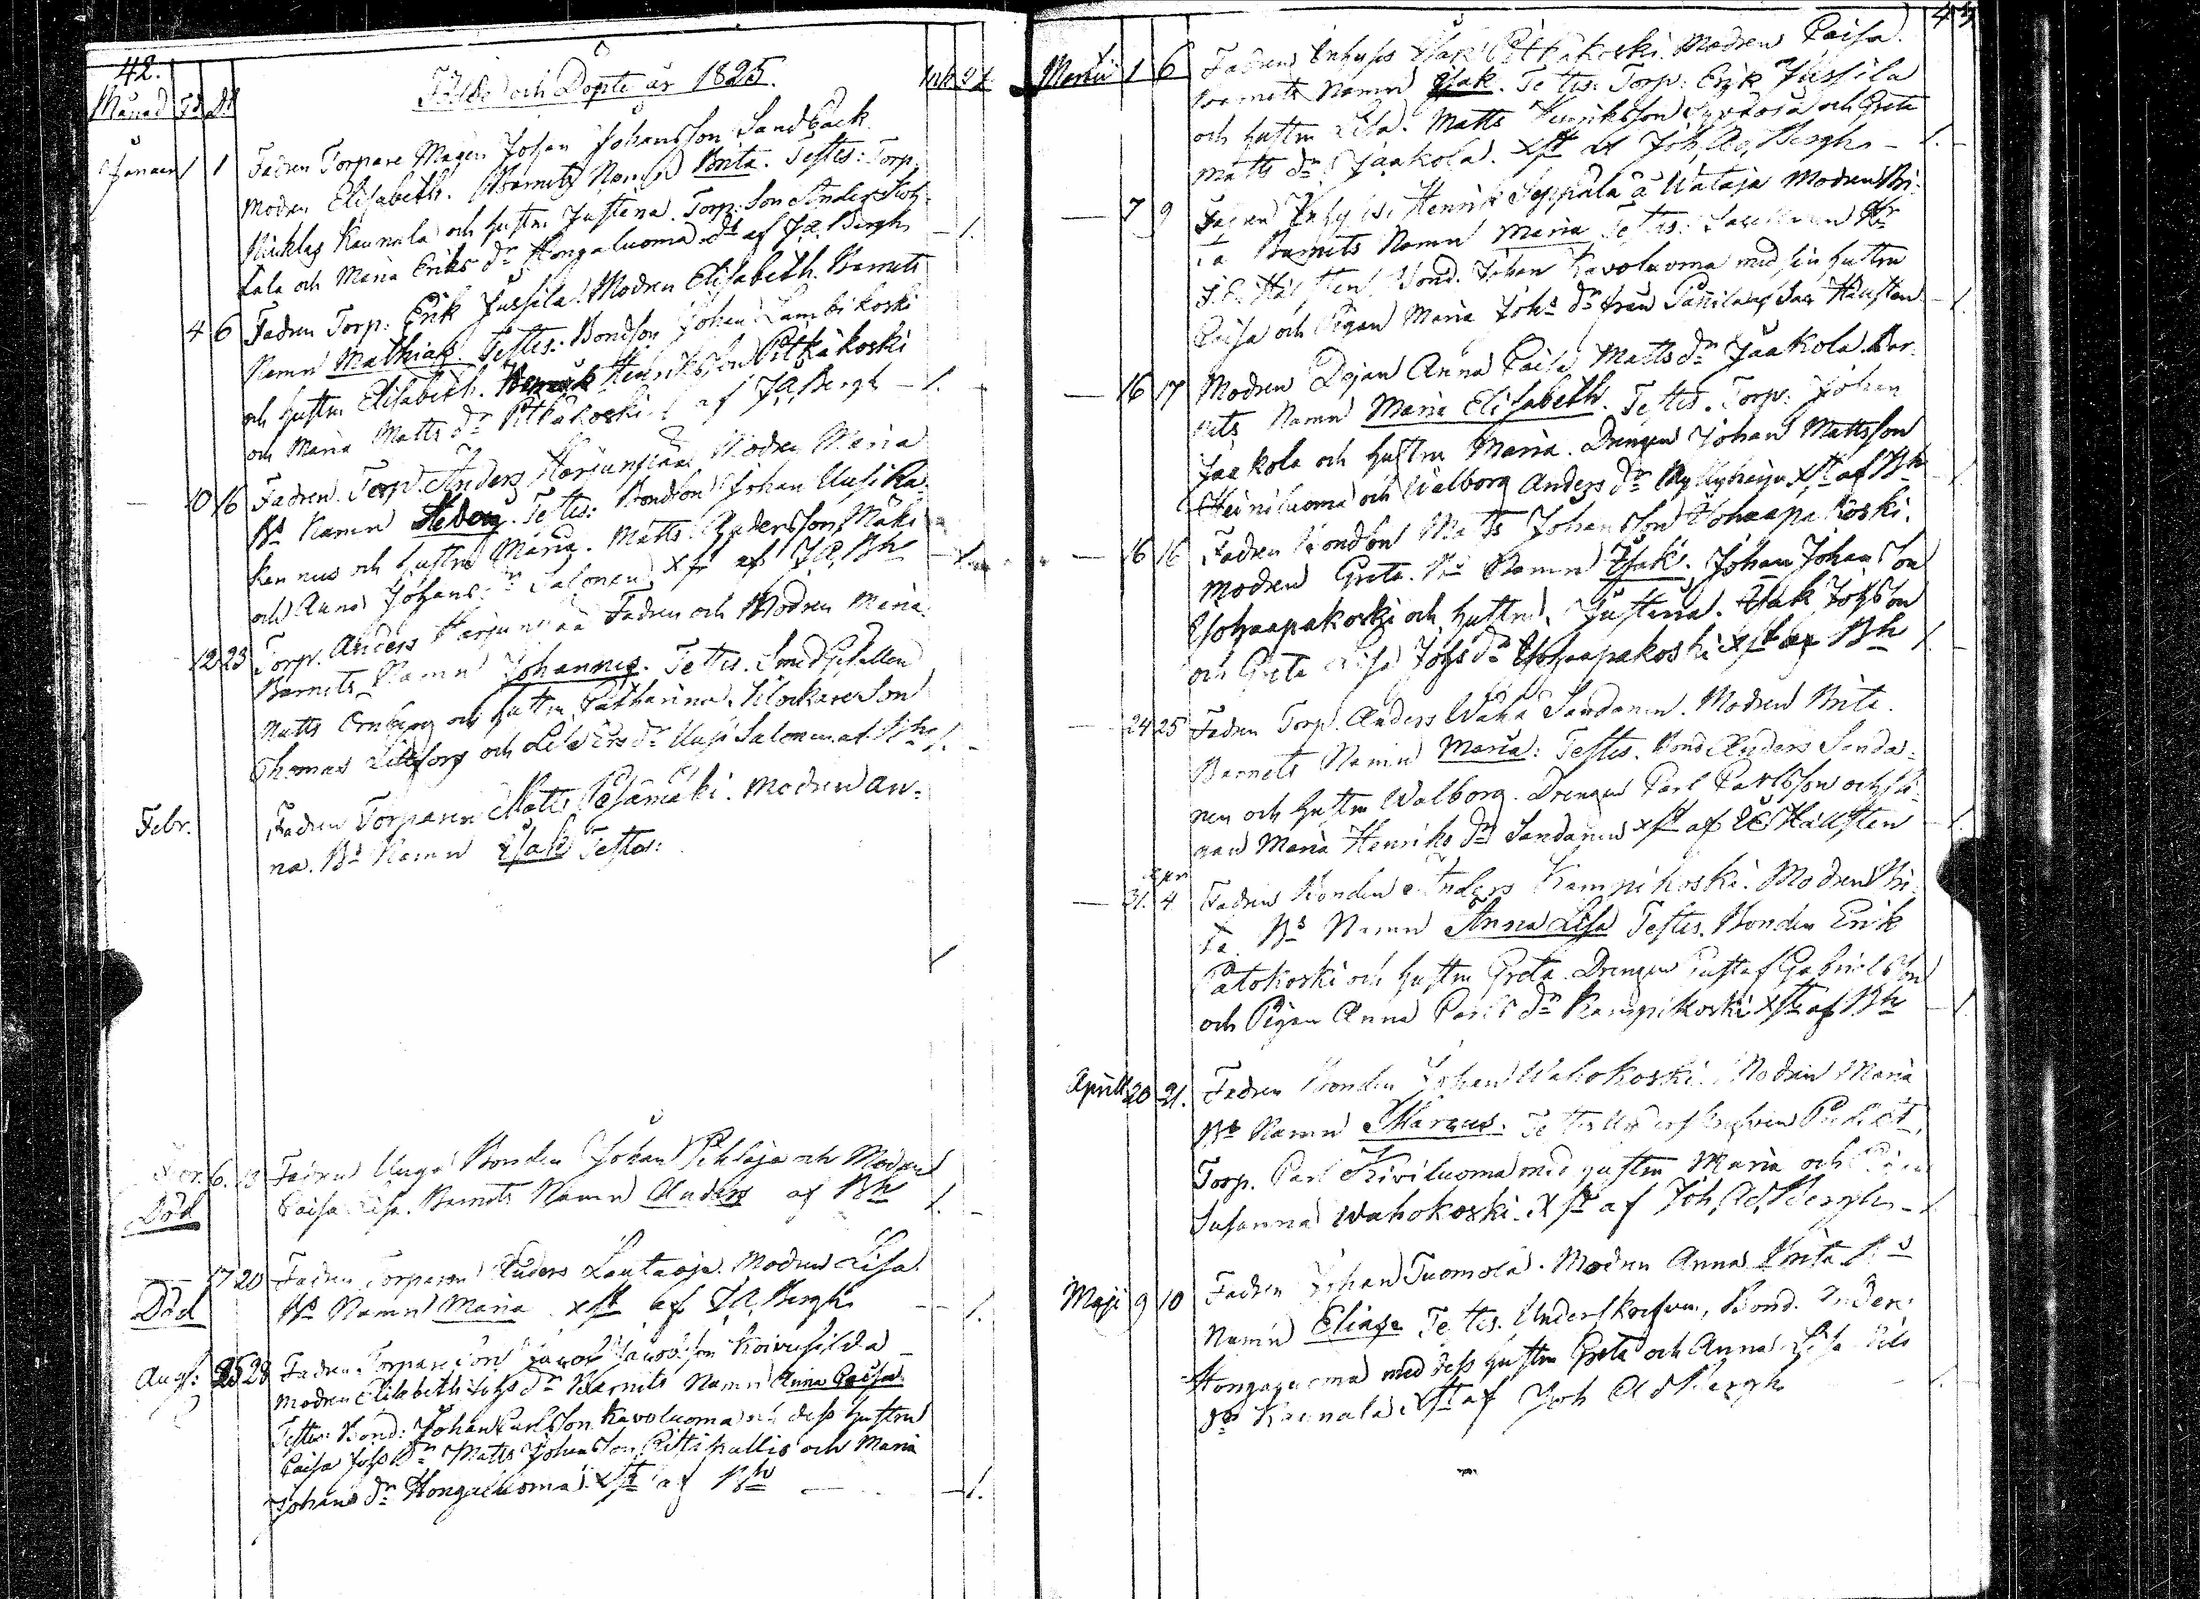 42.
Födde och Döpte år 1825.
Månad Fd Dt
Januari 1 Fadren Torpare Mågen Johan Johansson Sandback
Modren Elisabeth. Barnets Namn Brita. Testes: Torp.
Nicklas Kaunala och hustru Justena. Torp: Son Anders
kala och Maria Eriks dr Hongaluoma dt af J.A. Bergh — 1.
4 6 Fadren Torp: Erik Jussila Modren Elisabeth. Barnets
Namn Mathias. Testes: Bondson Johan Lambikoski
och hustru Elisabeth. Henriksson Pitkäkoski
och Maria Matts dr Pitkäkoski af J.A. Bergh — 1.
— 10 16 Fadren Torp. Anders Harjunpää Modren Maria
Bs Namn Hedvig. Testes: Bondson Johan Uusika
kennus och hustru Maria. Matts Andersson Mäki
och Anna Johans dr Salonen Xst af J.A. Bh — 1.
12 23 Torp. Anders Harjunpää Fadren och Modren Maria.
Barnets Namn Johannes. Testes. Smed Gesällen
Matts Ornberg och hustru Catharina. Klockare Son
Thomas Lillfors och Lisa Ers dr Uusi Salonen af Bh 1.
Febr. Fadren Torparen Matts Pesämäki. Modren An-
na. Bs Namn Isak Testes:
6. 13 Fadren Unga Bonden Johan Pihlaja och Modren
Död Caisa Lisa. Barnets Namn Anders af Bh 1.
— 17 20 Fadren Torparen Anders Lautaoja. Modren Lisa
Död Bs Namn Maria Xst af J.A. Bergh — 1.
Aug: 25 28 Fadren Torpare Son Jacob Jacobsson Koivusilda
Modren Elisabeth Johs dr Barnets Namn Anna Caisa
Testes: Bond: Johan Carlsson Kavoluoma och dess hustru
Caisa Johs dr Matts Johansson Rittipallio och Maria
Johans dr Hongaluoma. Xst af Bh — 1.
43
Martii 1 6 Fadren Inhyses Isak Pitkäkoski. Modren Caisa.
Barnets Namn Isak. Testes: Torp: Erik Jussila
och hustru Lisa. Matts Henriksson och Greta
Matts dr Jaakola. Xst af Joh. Ad. Bergh — 1.
— 7 9 Fadren Inhyses Henrik Seppälä å Wataja Modren Bri-
ta Barnets Namn Maria Testes:
Bond. Johan Kavoluoma med sin hustru
Caisa och Pigan Maria Johs dr från Panula af Hällsten — 1.
— 16 17 Modren Pigan Anna Caisa Matts dr Jaakola. Bar-
nets Namn Maria Elisabeth. Testes. Torp: Johan
Jaakola och hustru Maria. Drengen Johan Mattsson
Heiniluoma och Walborg Anders dr Myllyharju Xst af Bh — 1.
— 16 16 Fadren Bondson Matts Johansson Ylihaapakoski.
Modren Greta. Bs Namn Isak. Johan Johansson
Ylihaapakoski och hustru Justena. Isak Johsson
och Greta Lisa Johs dr Ylihaapakoski Xst af Bh 1.
— 24 25 Fadren Torp. Anders Wäha Sandanen. Modren Brita.
Barnets Namn Maria: Testes. Bond Anders Sanda-
nen och hustru Walborg. Drengen Carl Carlsson och Pi-
gan Maria Henriks dr Sandanen Xst af Hällsten — 1.
Apr
— 31. 4 Fadren Bonden Anders Kampikoski. Modren Bri-
ta Bs Namn Anna Lisa Testes. Bonden Erik
Patokoski och hustru Greta. Drengen Gustaf Gabrielsson
och Pigan Anna Carls dr Kampikoski Xst af Bh — 1.
Aprill 20 21. Fadren Bonden Johan Wahokoski. Modren Maria
Bs Namn Marcus. Testes
Torp. Carl Kiviluoma med hustru Maria och
Susanna Wahokoski. Xst af Joh. Ad. Bergh — 1.
Maji 9 10 Fadren Johan Tuomola. Modren Anna Brita Bs
Namn Elias Testes. Underskrifven, Bond.
Hongaluoma med dess hustru Greta och Anna Lisa Nils
dr Kaunala. Xst af Joh Ad Bergh — 1.